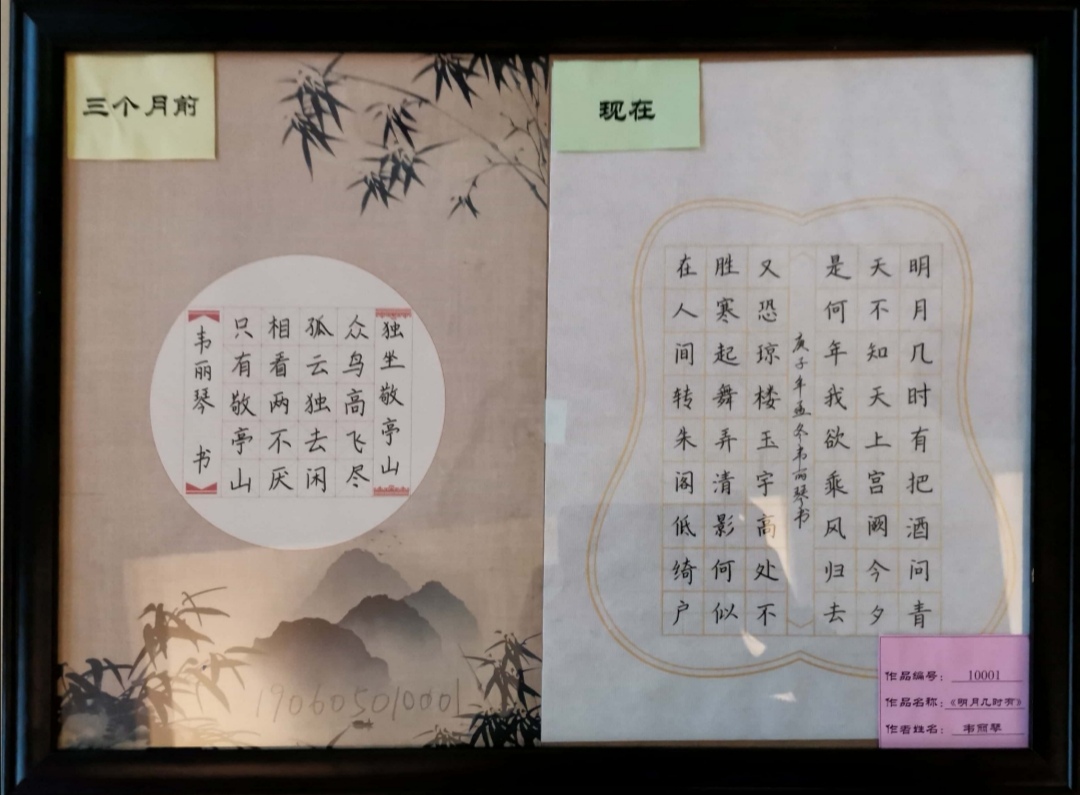 三个月前
独坐敬亭山
众鸟高飞尽
孤云独去闲
相看两不厌
只有敬亭山
韦丽琴 书
190605010001
现在
明月几时有把酒问青
天不知天上宫阙今夕
是何年我欲乘风归去
庚子年孟冬韦丽琴书
又恐琼楼玉宇高处不
胜寒起舞弄清影何似
在人间转朱阁低绮户
作品编号：10001
作品名称：《明月几时有》
作者姓名：韦丽琴